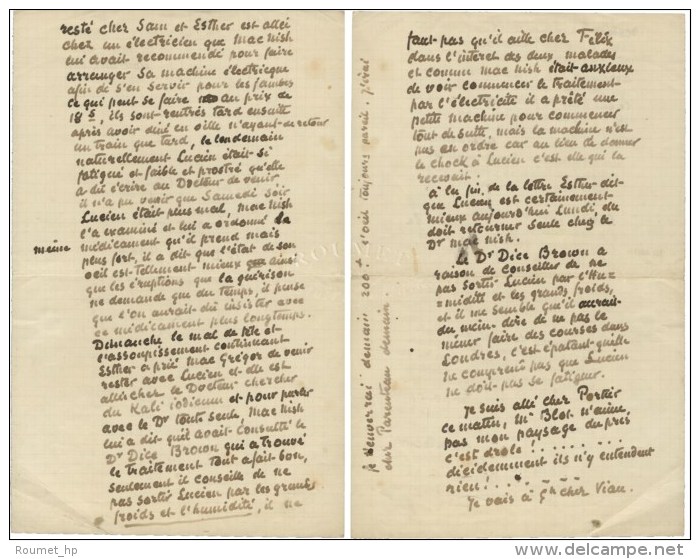 resté chez Sam et Esther est allée
chez un électricien que Mac Nish
lui avait recommandé pour faire
arranger sa machine électrique
afin de s'en servir pour les jambes
ce qui peut se faire au prix de
18 s, ils sont rentrés tard ensuite
après avoir diné en ville n'ayant de retour
un train que tard, le lendemain
naturellement Lucien était si
fatigué et faible et prostré qu'elle
a dû écrire au Docteur de venir
il n'a pu venir que Samedi soir
Lucien était plus mal, Mac Nish
l'a examiné et lui a ordonné le
même médicament qu'il prend mais
plus fort, il a dit que l'état de son
oeil est tellement mieux ainsi
que les éruptions que la guérison
ne demande que du temps, il pense
que l'on aurait dû insister avec
ce médicament plus longtemps.
Dimanche le mal de tête et
l'assoupissement continuant
Esther a prié Mac Grégor de venir
rester avec Lucien et elle est
allée chez le Docteur chercher
du Kali iodicum et pour parler
avec le Dr toute seule, Mac Nish
lui a dit qu'il avait consulté le
Dr Dice Brown qui a trouvé
le traitement tout à fait bon,
seulement il conseille de ne
pas sortir Lucien par les grands
froids et l'humidité, il ne
faut pas qu'il aille chez Felix
dans l'intérêt des deux malades
et comme Mac Nish était anxieux
de voir commencer le traitement
par l'électricité il a prêté une
petite machine pour commencer
tout de suite, mais la machine n'est
pas en ordre car au lieu de donner
le chock à Lucien c'est elle qui la
recevait.
à la fin de la lettre Esther dit
que Lucien est certainement
mieux aujourd'hui Lundi, elle
doit retourner seule chez le
Dr Mac Nish.
Le Dr Dice Brown a
raison de conseiller de ne
pas sortir Lucien par l'Hu=
=midité et les grands froids,
et il me semble qu'il aurait
du moins dire de ne pas le
mener faire des courses dans
Londres, c'est épatant qu'elle
ne comprend pas que Lucien
ne doit pas se fatiguer.
Je suis allé chez Portier
ce matin, Mr Blot n'aime
pas mon paysage du prix
c'est drole . . . . . . . . .
décidemment ils n'y entendent
rien! . . . . . . . .
Je vais à 5h chez Viau.
je t'enverrai demain 200 f. l'oeil toujours pareil. j'irai
chez Parenteau demain.
Roumet_hp
www.delcampe.net